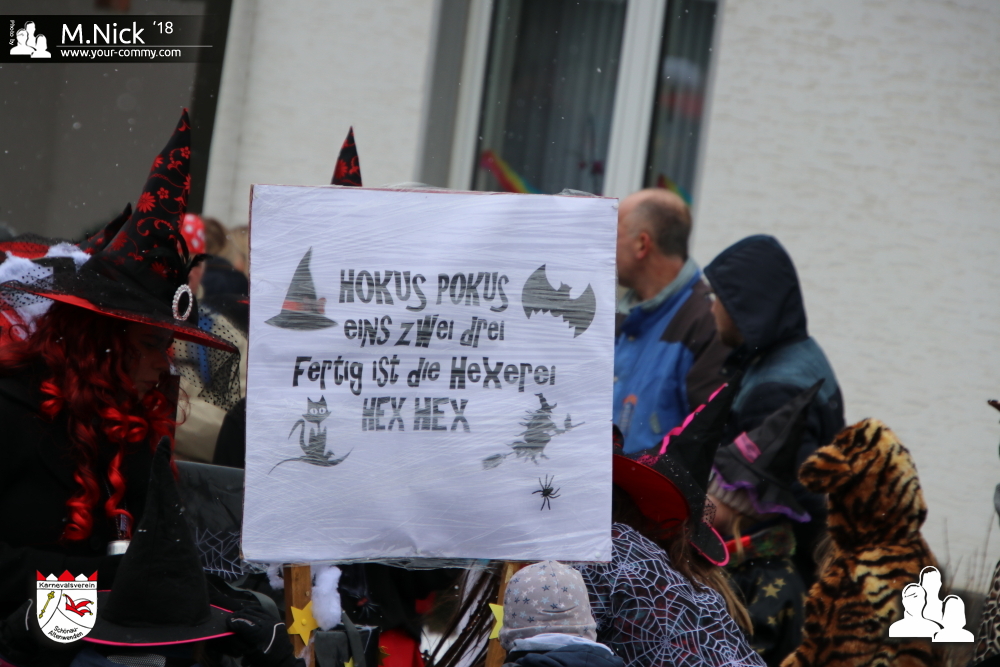 Photo by
M.Nick '18
www.your-commy.com
HOKUS POKUS
eINS zWei drei
Fertig ist die HeXerei
HEX HEX
Karnevalsverein
Schönau-
Altenwenden